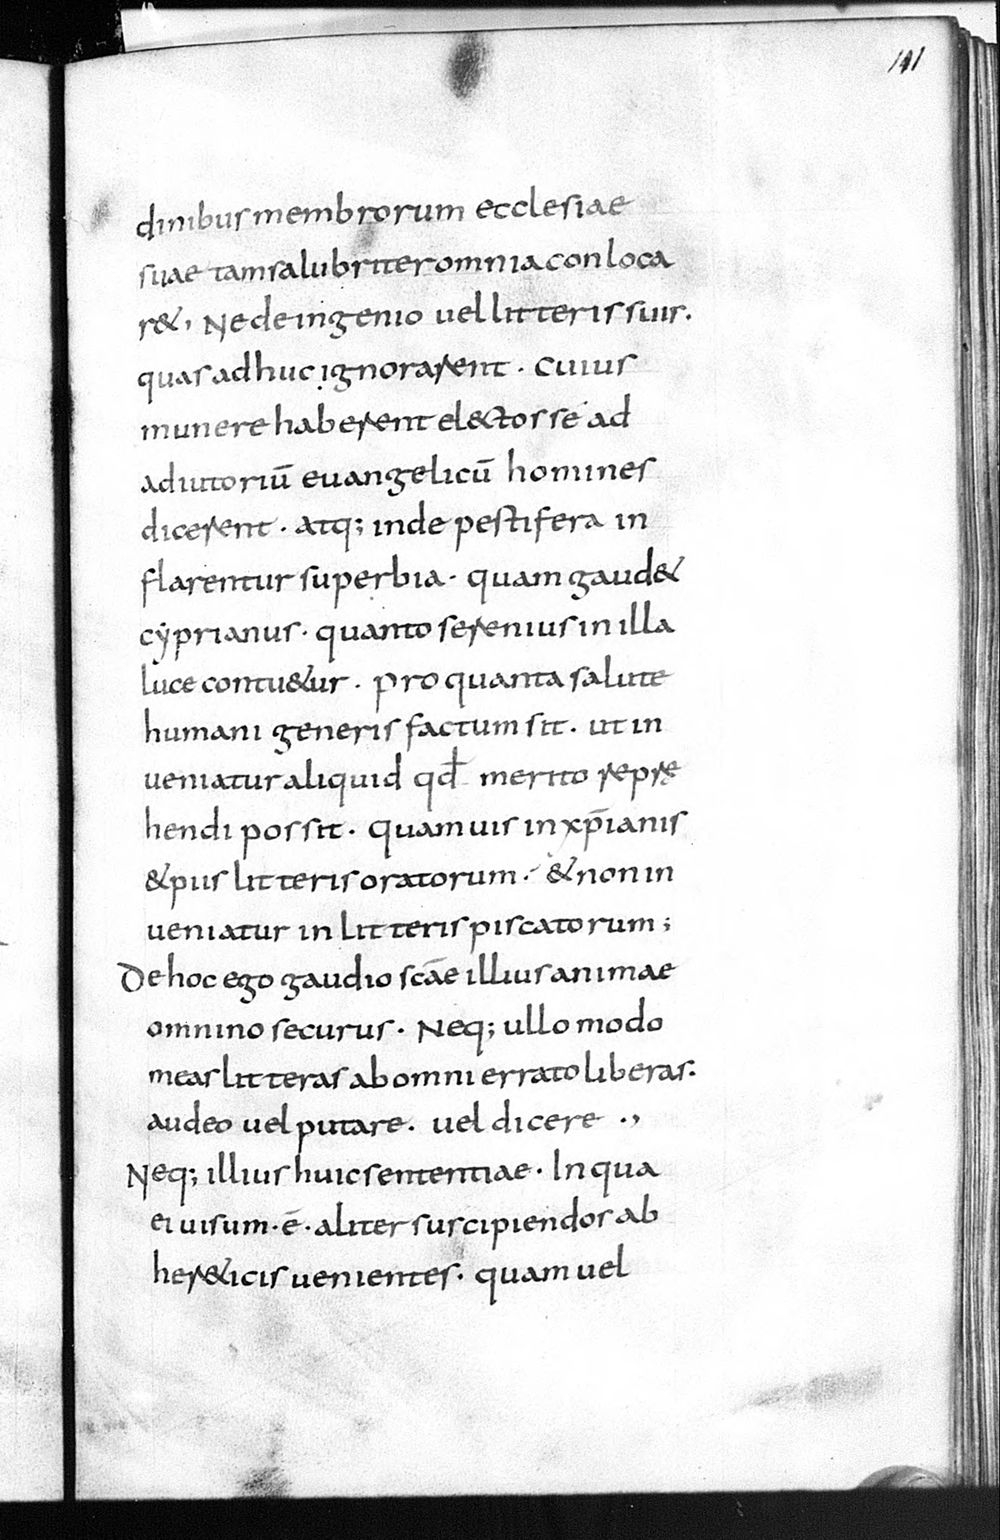 141
dinibus membrorum ecclesiae
suae tam salubriter omnia conloca
r&, Ne de ingenio uel litteris suis.
quas adhuc ignorarent · cuius
munere haberent el&os se ad
adiutoriū euangelicū homines
dicerent · atq; inde pestifera in
flarentur superbia · quam gaud&
cẏprianus · quanto serenius in illa
luce contu&ur · pro quanta salute
humani generis factum sit · ut in
ueniatur aliquid qđ merito repre
hendi possit · quamuis in xp̄ianis
& piis litteris oratorum · & non in
ueniatur in litteris piscatorum ;
De hoc ego gaudio scāe illius animae
omnino securus · Neq; ullo modo
meas litteras ab omni errato liberas.
audeo uel putare. uel dicere .,
Neq; illius huic sententiae · In qua
ei uisum · ē · aliter suscipiendos ab
her&icis uenientes · quam uel